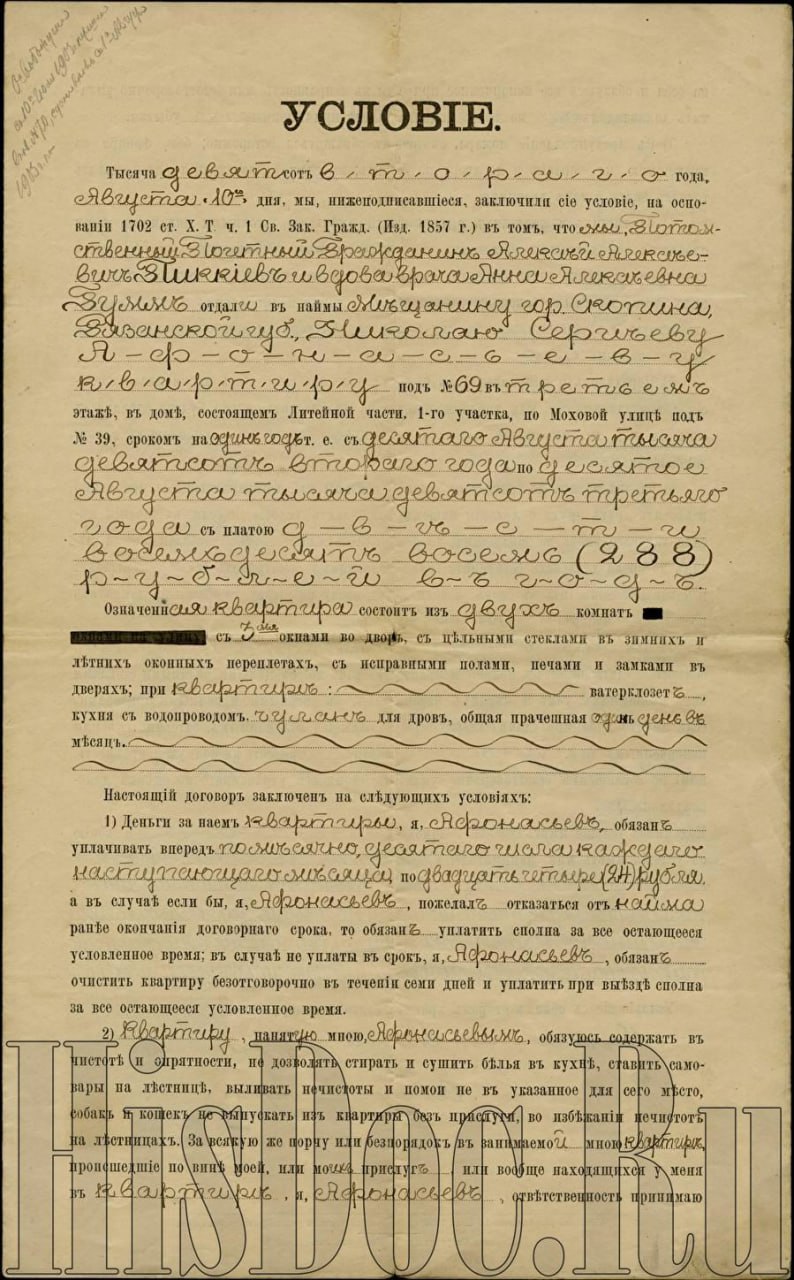 УСЛОВІЕ.
Тысяча девятсотъ в-т-о-р-а-г-о года,
Августа "10го" дня, мы, нижеподписавшіеся, заключили сіе условіе, на осно-
ваніи 1702 ст. Х. Т. ч. 1 Св. Зак. Гражд. (Изд. 1857 г.) въ томъ, что мы, Потом-
ственный Почетный Гражданинъ Алексѣй Алексѣе-
вичъ Пиккіевъ и вдова врача Анна Алексѣевна
отдали въ наймы Мѣщанину гор. Скопина,
Рязанской губ., Николаю Сергѣеву
А-ф-о-н-а-с-ь-е-в-у
к-в-а-р-т-и-р-у подъ № 69 въ третьемъ
этажѣ, въ домѣ, состоящемъ Литейной части, 1-го участка, по Моховой улицѣ подъ
№ 39, срокомъ на одинъ годъ т. е. съ десятаго Августа тысяча
девятсотъ втораго года по десятое
Августа тысяча девятсотъ третьяго
года съ платою д-в-ѣ-с-т-и
восемьдесятъ восемь (288)
р-у-б-л-е-й в-ъ г-о-д-ъ.
Означенная квартира состоитъ изъ двухъ комнатъ
съ 3мя окнами во дворъ, съ цѣльными стеклами въ зимнихъ и
лѣтнихъ оконныхъ переплетахъ, съ исправными полами, печами и замками въ
дверяхъ; при квартирѣ: ватерклозетъ,
кухня съ водопроводомъ, чуланъ для дровъ, общая прачешная одинъ день въ
мѣсяцъ.
Настоящій договоръ заключенъ на слѣдующихъ условіяхъ:
1) Деньги за наемъ квартиры, я, Афонасьевъ, обязанъ
уплачивать впередъ помѣсячно, десятаго числа каждаго
наступающаго мѣсяца, по двадцать четыре (24) рубля,
а въ случаѣ если бы, я, Афонасьевъ, пожелалъ отказаться отъ найма
ранѣе окончанія договорнаго срока, то обязанъ уплатить сполна за все остающееся
условленное время; въ случаѣ не уплаты въ срокъ, я, Афонасьевъ, обязанъ
очистить квартиру безотговорочно въ теченіи семи дней и уплатить при выѣздѣ сполна
за все остающееся условленное время.
2) Квартиру, нанятую мною, Афонасьевымъ, обязуюсь содержать въ
чистотѣ и опрятности, не дозволять стирать и сушить бѣлья въ кухнѣ, ставить само-
вары на лѣстницѣ, выливать нечистоты и помои не въ указанное для сего мѣсто,
собакъ и кошекъ не выпускать изъ квартиры безъ прислуги, во избѣжаніи нечистотъ
на лѣстницахъ. За всякую же порчу или безпорядокъ въ занимаемой мною квартирѣ,
происшедшіе по винѣ моей, или моихъ прислугъ или вообще находящихся у меня
въ квартирѣ, я, Афонасьевъ, отвѣтственность принимаю
HisDoc.Ru